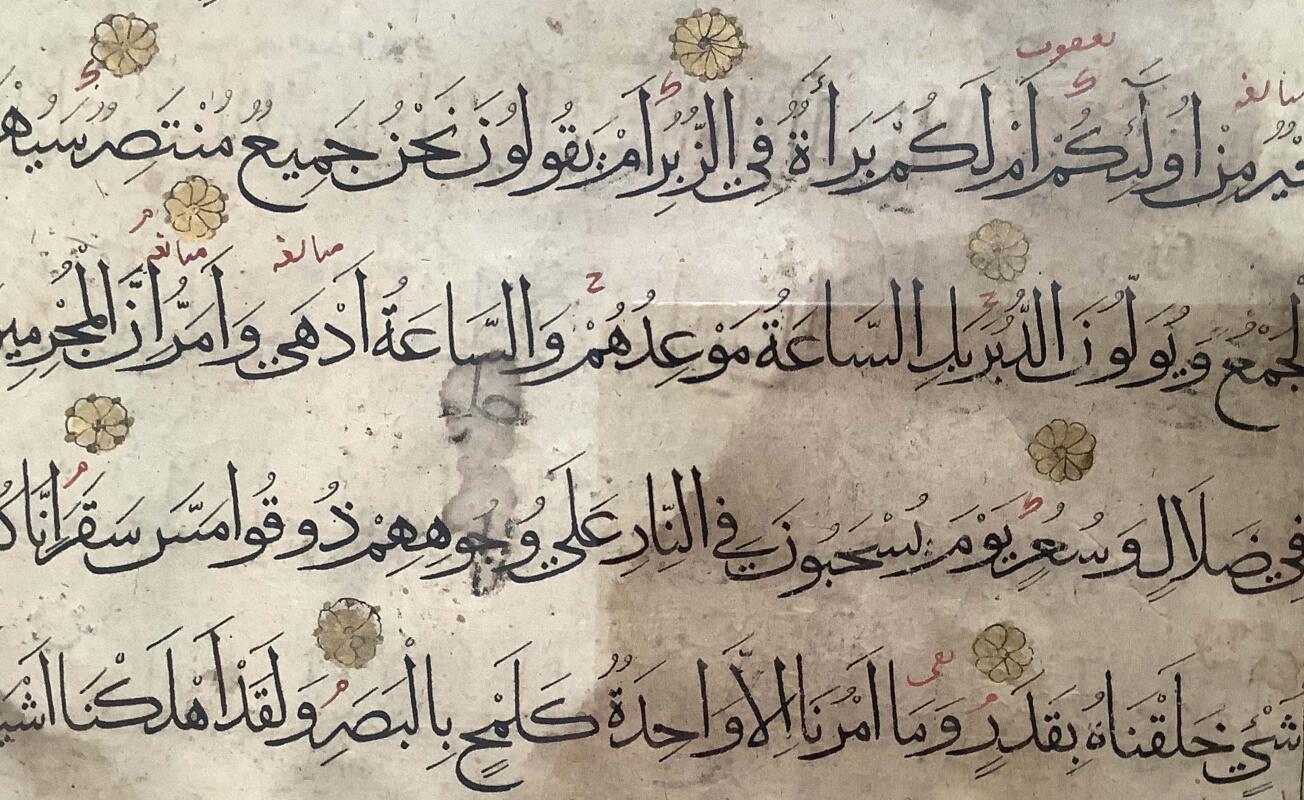 خَيْرٌ مِنْ اُولَٰٓئِكُمْ اَمْ لَكُمْ بَرَاءَةٌ فِي الزُّبُرِ اَمْ يَقُولُونَ نَحْنُ جَمِيعٌ مُنْتَصِرٌ سَيُهْ
الْجَمْعُ وَيُوَلُّونَ الدُّبُرَ بَلِ السَّاعَةُ مَوْعِدُهُمْ وَالسَّاعَةُ اَدْهَي وَاَمَرُّ اِنَّ الْمُجْرِمِين
فِي ضَلَالٍ وَسُعُرٍ يَوْمَ يُسْحَبُونَ فِي النَّارِ عَلَي وُجُوهِهِمْ ذُوقُوا مَسَّ سَقَرَ اِنَّا كُ
شَيْءٍ خَلَقْنَاهُ بِقَدَرٍ وَمَا اَمْرُنَا اِلاَّ وَاحِدَةٌ كَلَمْحٍ بِالْبَصَرِ وَلَقَدْ اَهْلَكْنَا اَشْيَ